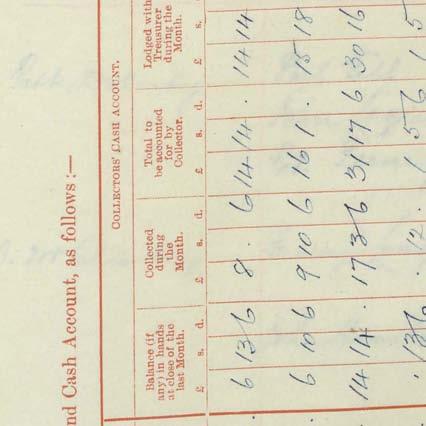 nd Cash Account, as follows :—
COLLECTORS' CASH ACCOUNT.
Balance (if
any) in hands
at close of the
last Month.
Collected
during
the
Month.
Total to
be accounted
for by
Collector.
Lodged with
Treasurer
during the
Month.
£ s. d. £ s. d. £ s. d. £ s.
6 13 6 8 . 6 14 14 . 14 14
6 10 6 9 10 6 16 1 . 15 18
14 14 . 17 3 6 31 17 6 30 16
. 13 6 . 12 . 1 5 6 1 5